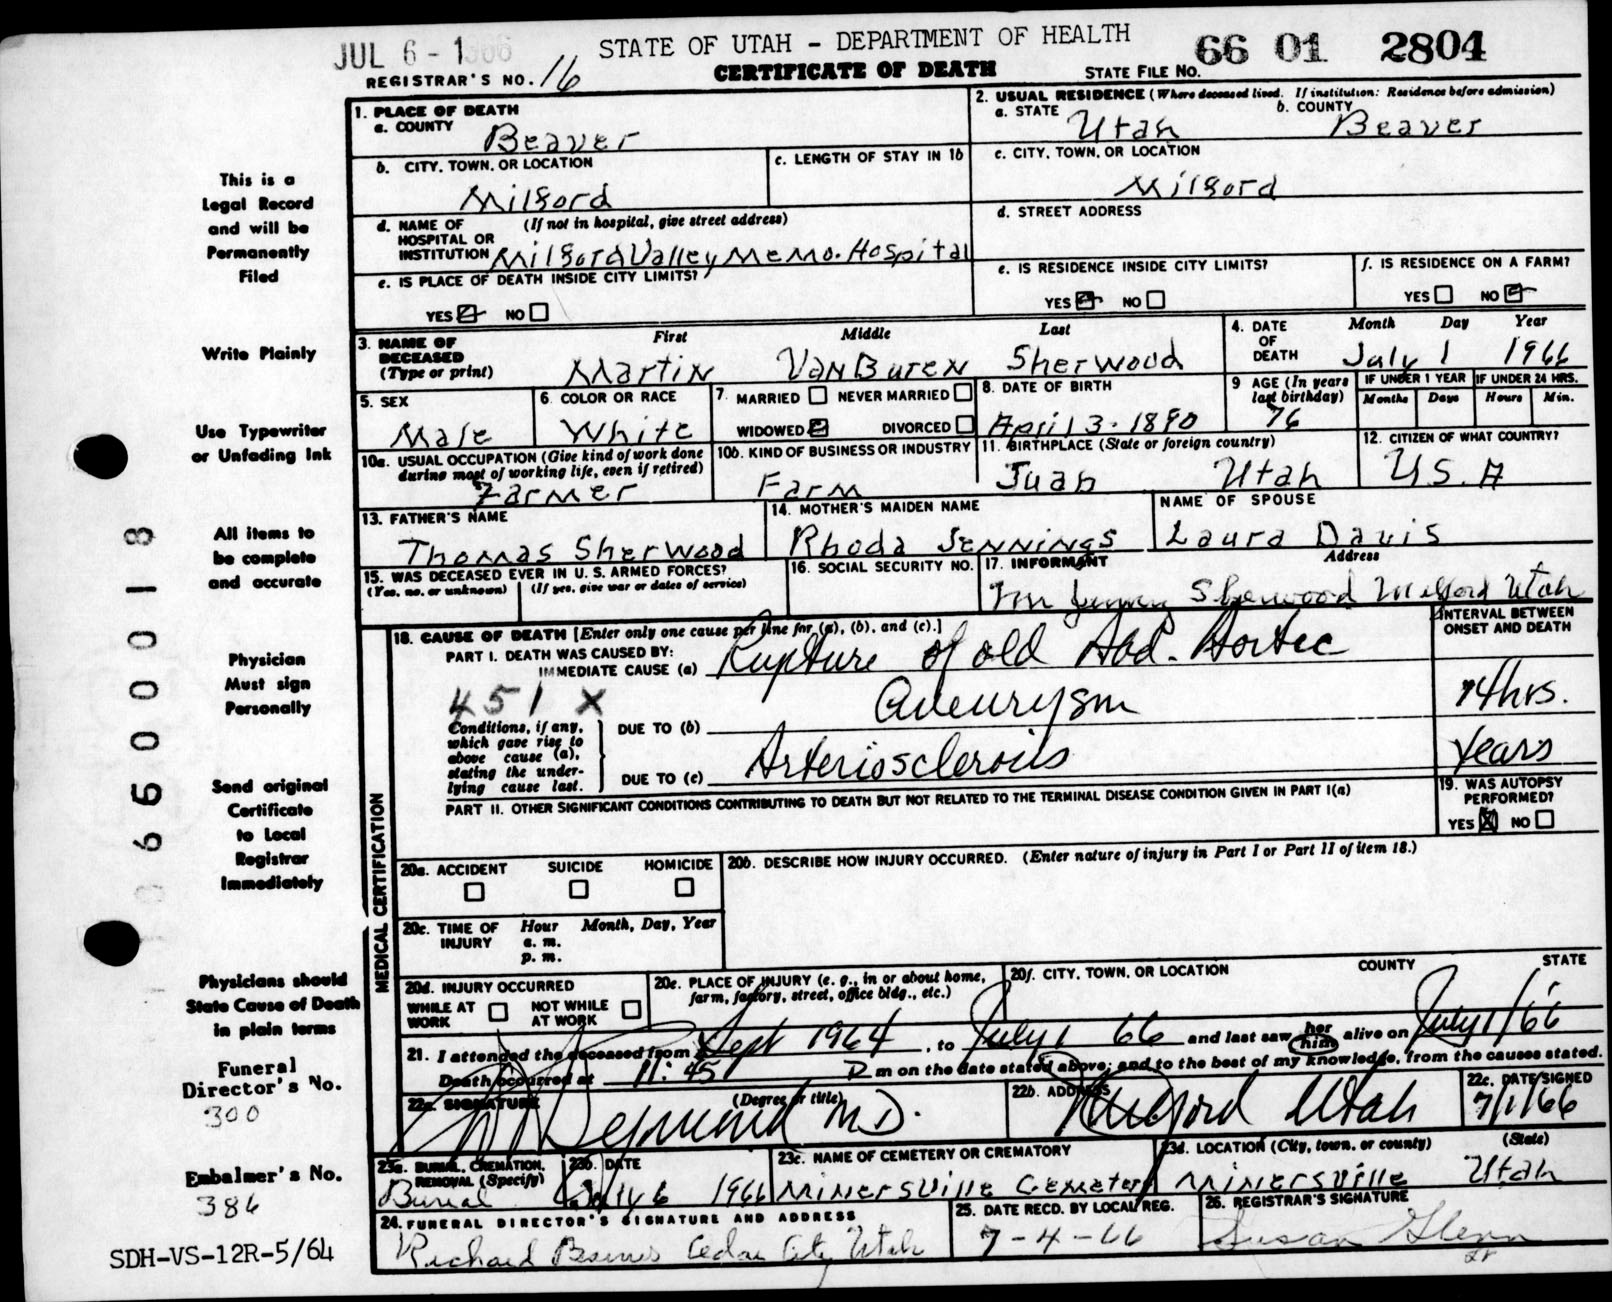 JUL 6 - 1966
STATE OF UTAH - DEPARTMENT OF HEALTH
66 01 2804
REGISTRAR'S NO. 16
CERTIFICATE OF DEATH
STATE FILE NO.
1. PLACE OF DEATH
a. COUNTY
Beaver
2. USUAL RESIDENCE (Where deceased lived. If institution: Residence before admission)
a. STATE
Utah
b. COUNTY
Beaver
b. CITY, TOWN, OR LOCATION
Milford
c. LENGTH OF STAY IN 1b
c. CITY, TOWN, OR LOCATION
Milford
d. NAME OF HOSPITAL OR INSTITUTION (If not in hospital, give street address)
Milford Valley Memo. Hospital
d. STREET ADDRESS
e. IS PLACE OF DEATH INSIDE CITY LIMITS?
YES ☑ NO ☐
e. IS RESIDENCE INSIDE CITY LIMITS?
YES ☑ NO ☐
f. IS RESIDENCE ON A FARM?
YES ☐ NO ☑
3. NAME OF DECEASED (Type or print)
First Middle Last
Martin VanBuren Sherwood
4. DATE OF DEATH
Month Day Year
July 1 1966
5. SEX
Male
6. COLOR OR RACE
White
7. MARRIED ☐ NEVER MARRIED ☐
WIDOWED ☑ DIVORCED ☐
8. DATE OF BIRTH
April 3. 1890
9 AGE (In years last birthday)
76
IF UNDER 1 YEAR
Months Days
IF UNDER 24 HRS.
Hours Min.
10a. USUAL OCCUPATION (Give kind of work done during most of working life, even if retired)
Farmer
10b. KIND OF BUSINESS OR INDUSTRY
Farm
11. BIRTHPLACE (State or foreign country)
Juab Utah
12. CITIZEN OF WHAT COUNTRY?
U.S.A
13. FATHER'S NAME
Thomas Sherwood
14. MOTHER'S MAIDEN NAME
Rhoda Jennings
NAME OF SPOUSE
Laura Davis
15. WAS DECEASED EVER IN U. S. ARMED FORCES?
(Yes, no, or unknown) (If yes, give war or dates of service)
16. SOCIAL SECURITY NO.
17. INFORMANT Address
Sherwood Milford Utah
18. CAUSE OF DEATH [Enter only one cause per line for (a), (b), and (c).]
PART I. DEATH WAS CAUSED BY:
IMMEDIATE CAUSE (a) Rupture of old Abd. Aortic
Aneurysm
451 X
Conditions, if any, which gave rise to above cause (a), stating the underlying cause last.
DUE TO (b)
DUE TO (c) Arteriosclerosis
INTERVAL BETWEEN ONSET AND DEATH
14hrs.
Years
PART II. OTHER SIGNIFICANT CONDITIONS CONTRIBUTING TO DEATH BUT NOT RELATED TO THE TERMINAL DISEASE CONDITION GIVEN IN PART I(a)
19. WAS AUTOPSY PERFORMED?
YES ☒ NO ☐
MEDICAL CERTIFICATION
20a. ACCIDENT SUICIDE HOMICIDE
☐ ☐ ☐
20b. DESCRIBE HOW INJURY OCCURRED. (Enter nature of injury in Part I or Part II of item 18.)
20c. TIME OF INJURY Hour Month, Day, Year
a. m.
p. m.
20d. INJURY OCCURRED
WHILE AT WORK ☐ NOT WHILE AT WORK ☐
20e. PLACE OF INJURY (e. g., in or about home, farm, factory, street, office bldg., etc.)
20f. CITY, TOWN, OR LOCATION COUNTY STATE
21. I attended the deceased from Sept 1964, to July 1 66 and last saw her him alive on July 1/66
Death occurred at 11:45 P m on the date stated above; and to the best of my knowledge, from the causes stated.
22a. SIGNATURE (Degree or title)
M.D.
22b. ADDRESS
Milford Utah
22c. DATE SIGNED
7/1/66
23a. BURIAL, CREMATION, REMOVAL (Specify)
Burial
23b. DATE
July 6 1966
23c. NAME OF CEMETERY OR CREMATORY
Minersville Cemetery
23d. LOCATION (City, town, or county) (State)
Minersville Utah
24. FUNERAL DIRECTOR'S SIGNATURE AND ADDRESS
Richard Cedar City Utah
25. DATE RECD. BY LOCAL REG.
7-4-66
26. REGISTRAR'S SIGNATURE
Susan Glenn
This is a
Legal Record
and will be
Permanently
Filed
Write Plainly
Use Typewriter
or Unfading Ink
All items to
be complete
and accurate
Physician
Must sign
Personally
Send original
Certificate
to Local
Registrar
Immediately
Physicians should
State Cause of Death
in plain terms
Funeral
Director's No.
300
Embalmer's No.
386
SDH-VS-12R-5/64